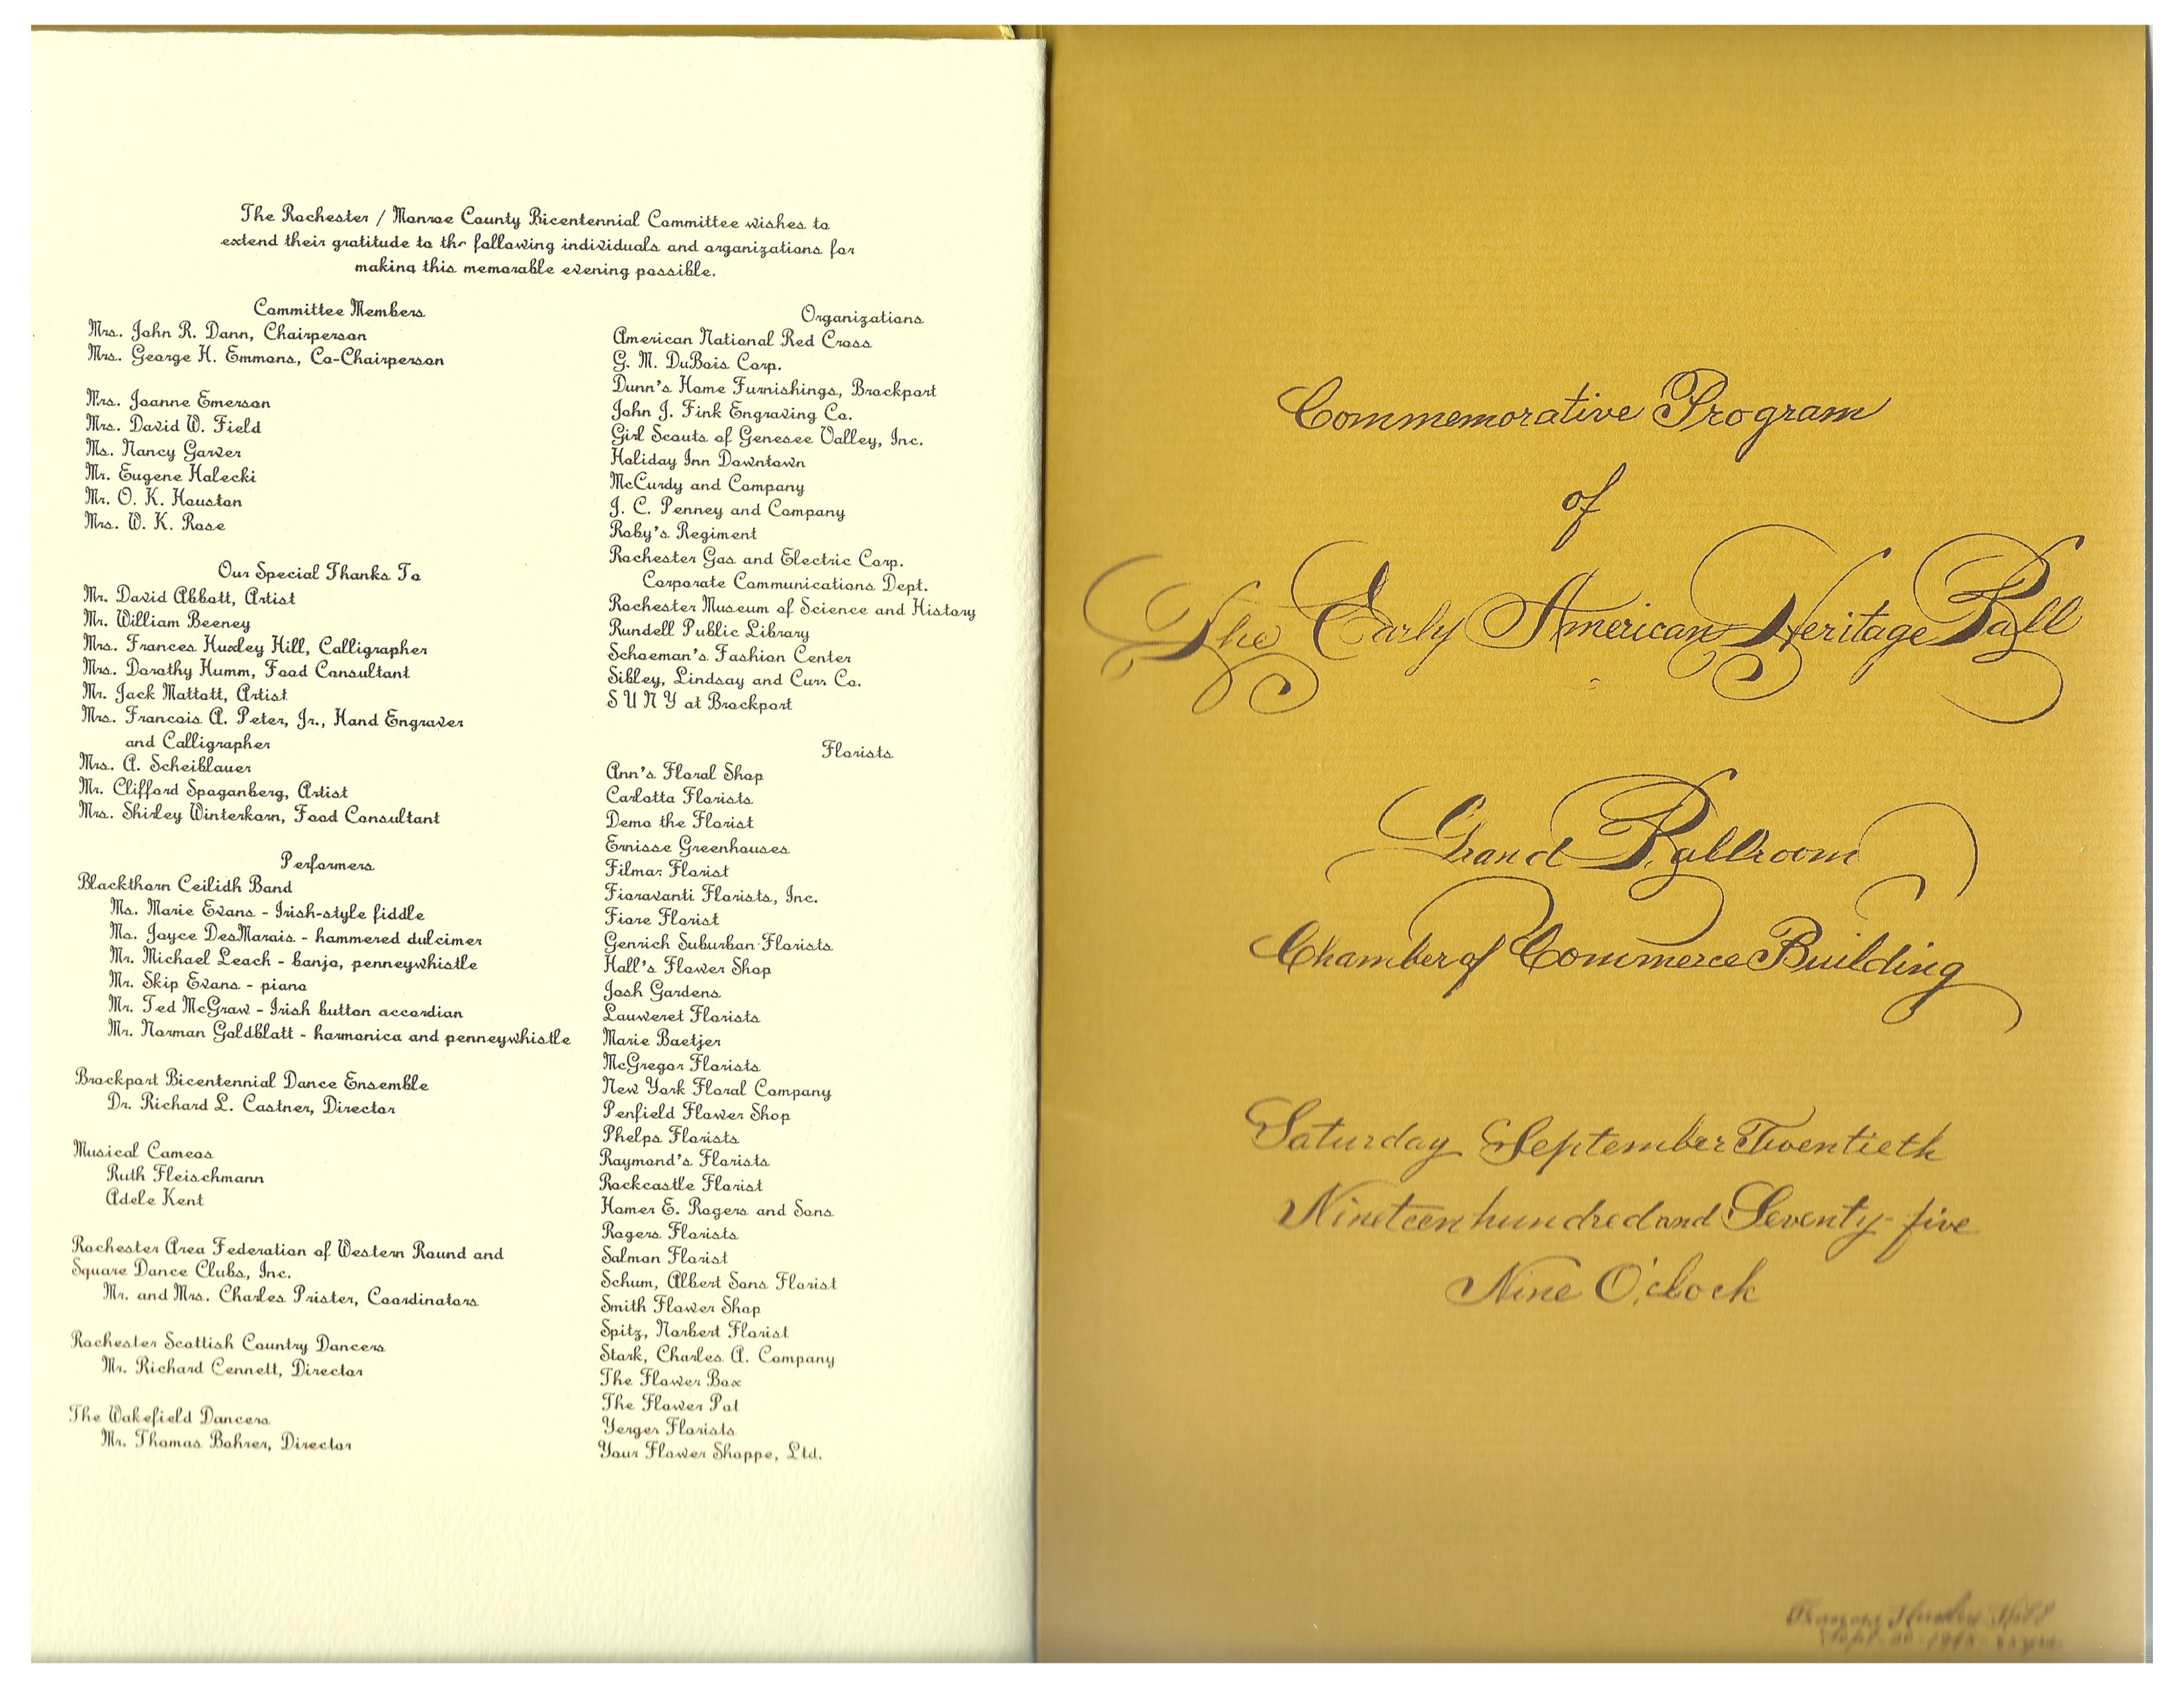 The Rochester / Monroe County Bicentennial Committee wishes to
extend their gratitude to the following individuals and organizations for
making this memorable evening possible.
Committee Members
Mrs. John R. Dann, Chairperson
Mrs. George H. Emmons, Co-Chairperson
Mrs. Joanne Emerson
Mrs. David W. Field
Ms. Nancy Garver
Mr. Eugene Halecki
Mr. O. K. Houston
Mrs. W. K. Rose
Our Special Thanks To
Mr. David Abbott, Artist
Mr. William Beeney
Mrs. Frances Huxley Hill, Calligrapher
Mrs. Dorothy Humm, Food Consultant
Mr. Jack Mattott, Artist
Mrs. Francois A. Peter, Jr., Hand Engraver
and Calligrapher
Mrs. A. Scheiblauer
Mr. Clifford Spaganberg, Artist
Mrs. Shirley Winterkorn, Food Consultant
Performers
Blackthorn Ceilidh Band
Ms. Marie Evans - Irish-style fiddle
Ms. Joyce DesMarais - hammered dulcimer
Mr. Michael Leach - banjo, penneywhistle
Mr. Skip Evans - piano
Mr. Ted McGraw - Irish button accordian
Mr. Norman Goldblatt - harmonica and penneywhistle
Brockport Bicentennial Dance Ensemble
Dr. Richard L. Castner, Director
Musical Cameos
Ruth Fleischmann
Adele Kent
Rochester Area Federation of Western Round and
Square Dance Clubs, Inc.
Mr. and Mrs. Charles Prister, Coordinators
Rochester Scottish Country Dancers
Mr. Richard Cennett, Director
The Wakefield Dancers
Mr. Thomas Bohrer, Director
Organizations
American National Red Cross
G. M. DuBois Corp.
Dunn's Home Furnishings, Brockport
John J. Fink Engraving Co.
Girl Scouts of Genesee Valley, Inc.
Holiday Inn Downtown
McCurdy and Company
J. C. Penney and Company
Roby's Regiment
Rochester Gas and Electric Corp.
Corporate Communications Dept.
Rochester Museum of Science and History
Rundell Public Library
Schoeman's Fashion Center
Sibley, Lindsay and Curr Co.
S U N Y at Brockport
Florists
Ann's Floral Shop
Carlotta Florists
Demo the Florist
Ernisse Greenhouses
Filmar Florist
Fioravanti Florists, Inc.
Fiore Florist
Genrich Suburban Florists
Hall's Flower Shop
Josh Gardens
Lauweret Florists
Marie Baetjer
McGregor Florists
New York Floral Company
Penfield Flower Shop
Phelps Florists
Raymond's Florists
Rockcastle Florist
Homer E. Rogers and Sons
Rogers Florists
Salmon Florist
Schum, Albert Sons Florist
Smith Flower Shop
Spitz, Norbert Florist
Stark, Charles A. Company
The Flower Box
The Flower Pot
Yerger Florists
Your Flower Shoppe, Ltd.
Commemorative Program
of
The Early American Heritage Ball
Grand Ballroom
Chamber of Commerce Building
Saturday September Twentieth
Nineteen hundred and Seventy-five
Nine O'clock
Frances Huxley Hill
Sept. 20 - 1975